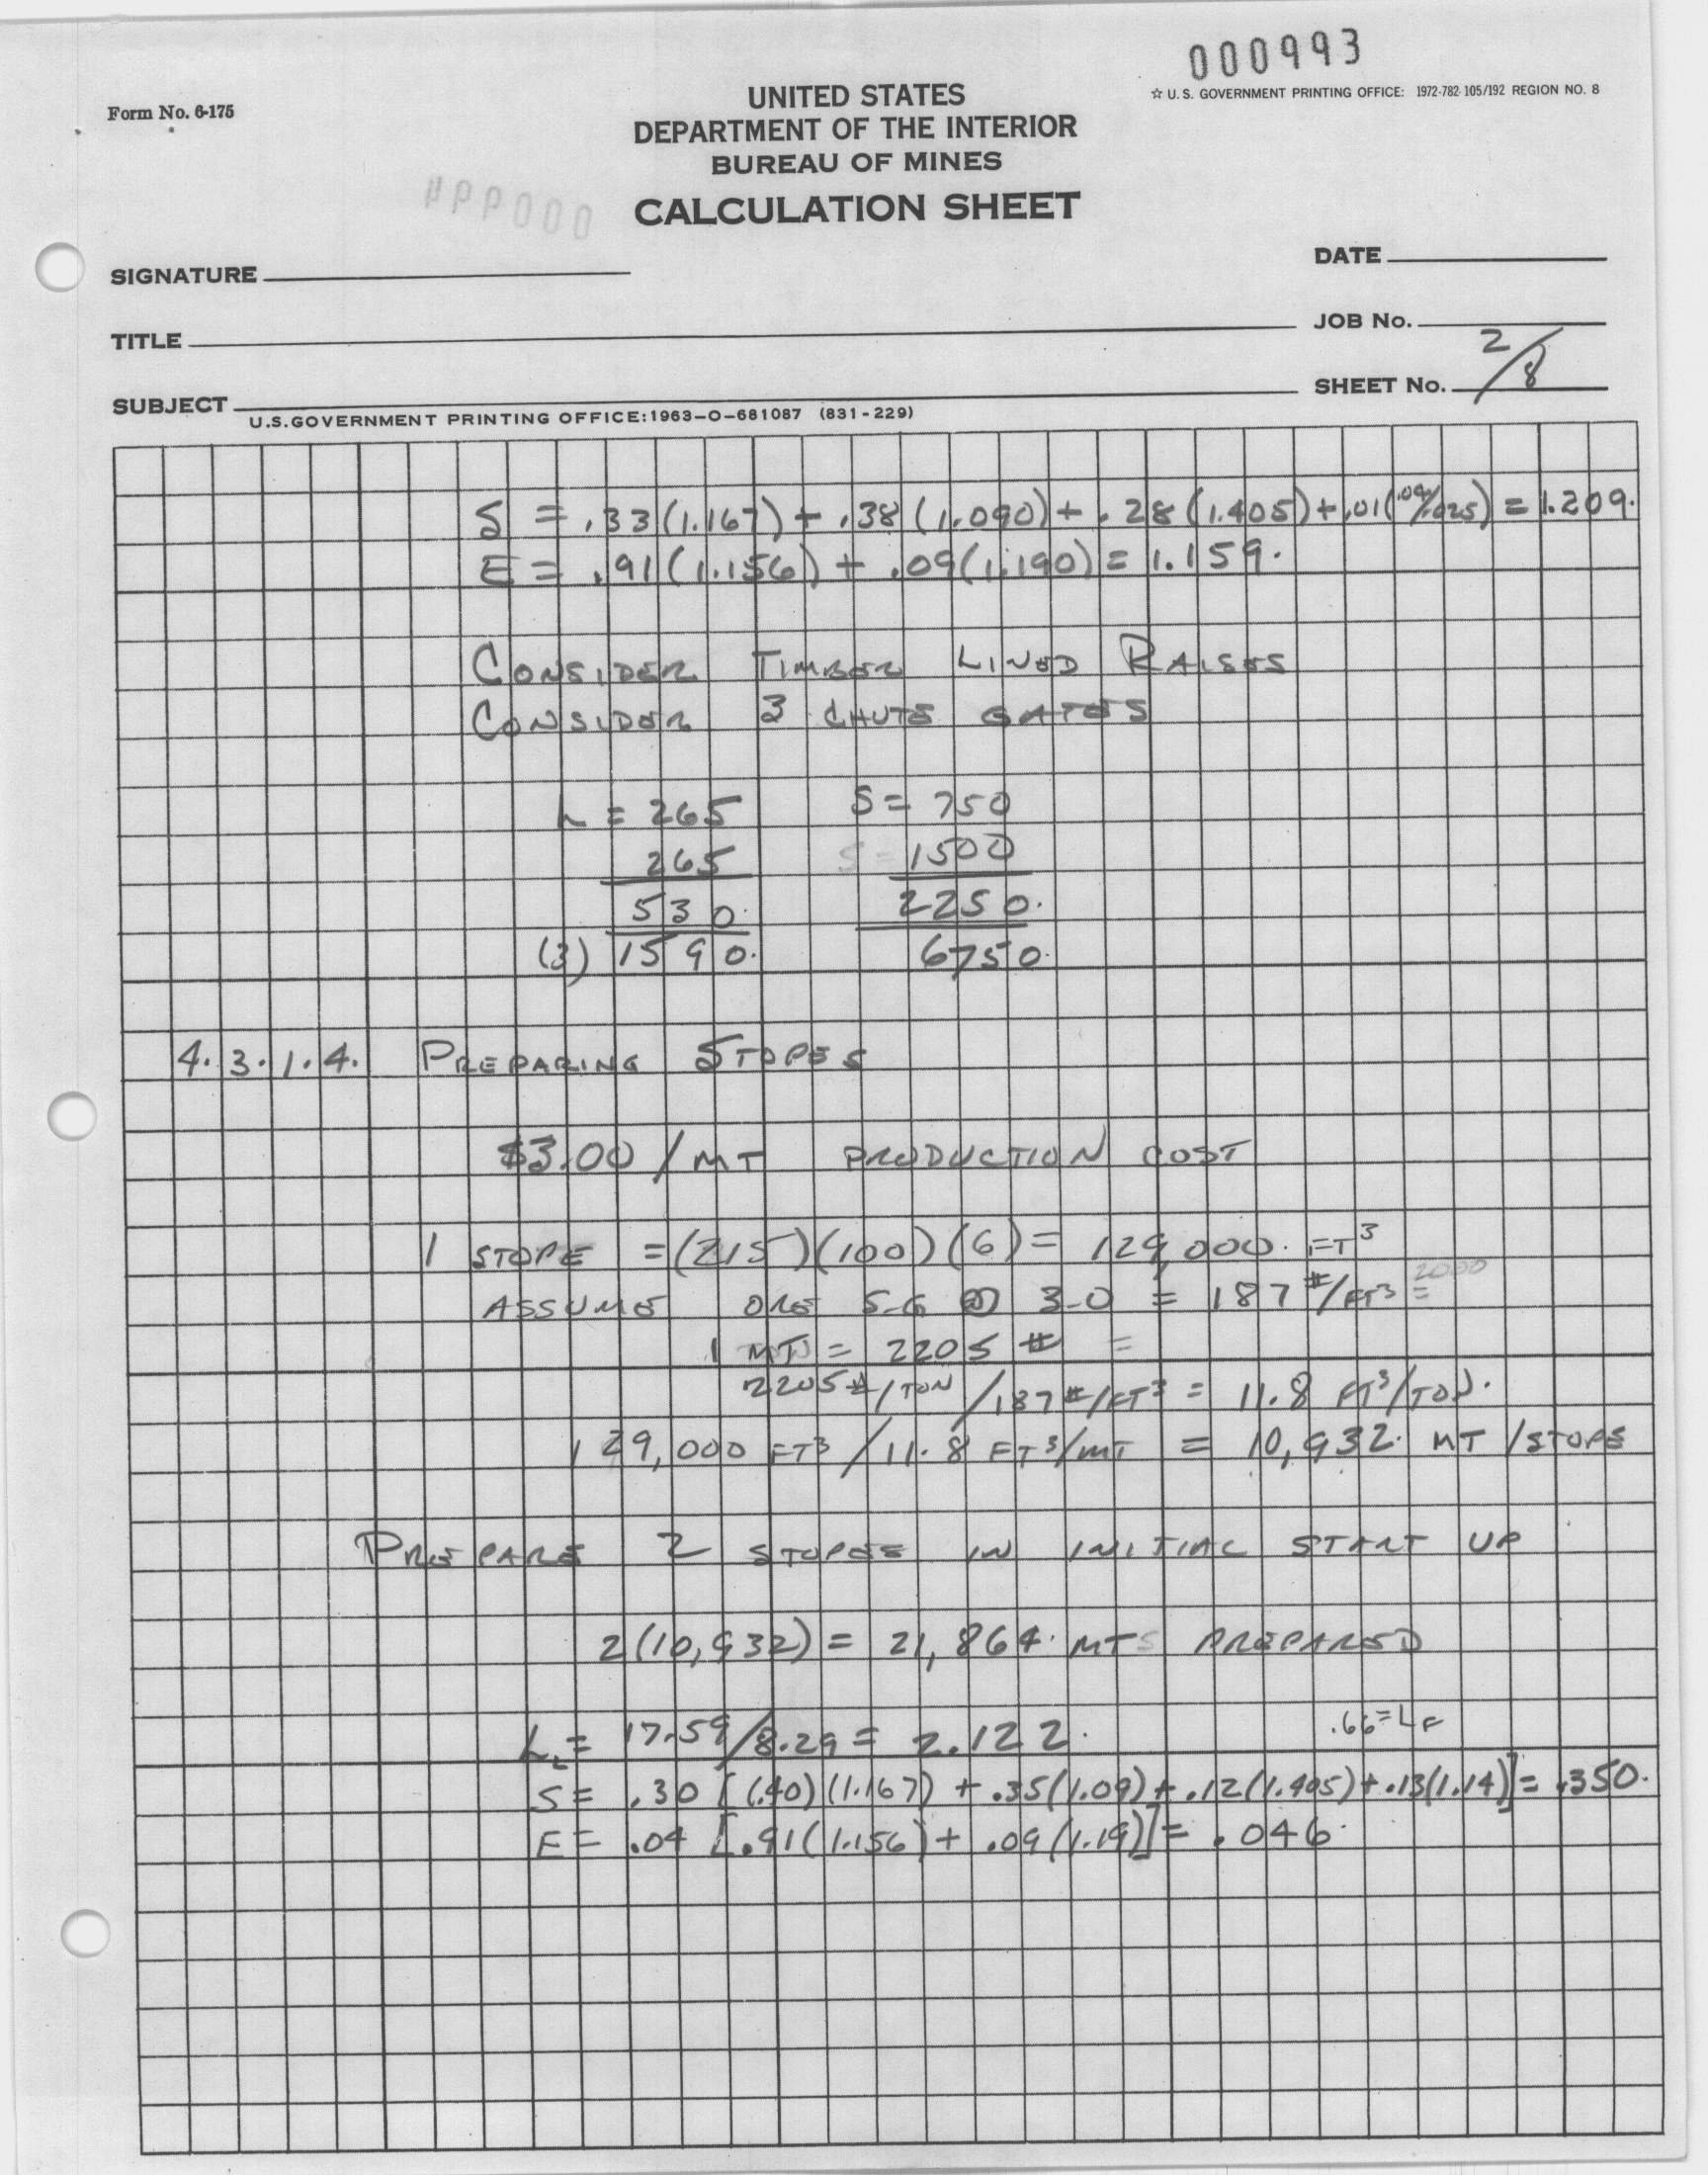 000993
☆ U. S. GOVERNMENT PRINTING OFFICE: 1972-782-105/192 REGION NO. 8
Form No. 6-175
UNITED STATES
DEPARTMENT OF THE INTERIOR
BUREAU OF MINES
CALCULATION SHEET
SIGNATURE
DATE
TITLE
JOB No.
SUBJECT
SHEET No. 2/8
U.S.GOVERNMENT PRINTING OFFICE:1963-O-681087 (831-229)
S = .33(1.167) + .38(1.090) + .28(1.405) + .01( /.025) = 1.209.
E = .91(1.156) + .09(1.190) = 1.159.
CONSIDER TIMBER LINED RAISES
CONSIDER 3 CHUTE GATES
L = 265 S = 750
265 S = 1500
530. 2250.
(3) 1590. 6750.
4.3.1.4. PREPARING STOPES
$3.00/MT PRODUCTION COST
1 STOPE = (215)(100)(6) = 129,000. FT³
ASSUME ORE S.G @ 3.0 = 187 #/FT³ = 2000
1 MT = 2205 # =
2205 #/TON / 187 #/FT³ = 11.8 FT³/TON.
129,000 FT³ / 11.8 FT³/MT = 10,932. MT/STOPE
PREPARE 2 STOPES IN INITIAL START UP
2(10,932) = 21,864. MTS PREPARED
.66 = LF
L = 17.59/8.29 = 2.122.
S = .30 [(.40)(1.167) + .35(1.09) + .12(1.405) + .13(1.14)] = .350.
E = .04 [.91(1.156) + .09(1.19)] = .046.